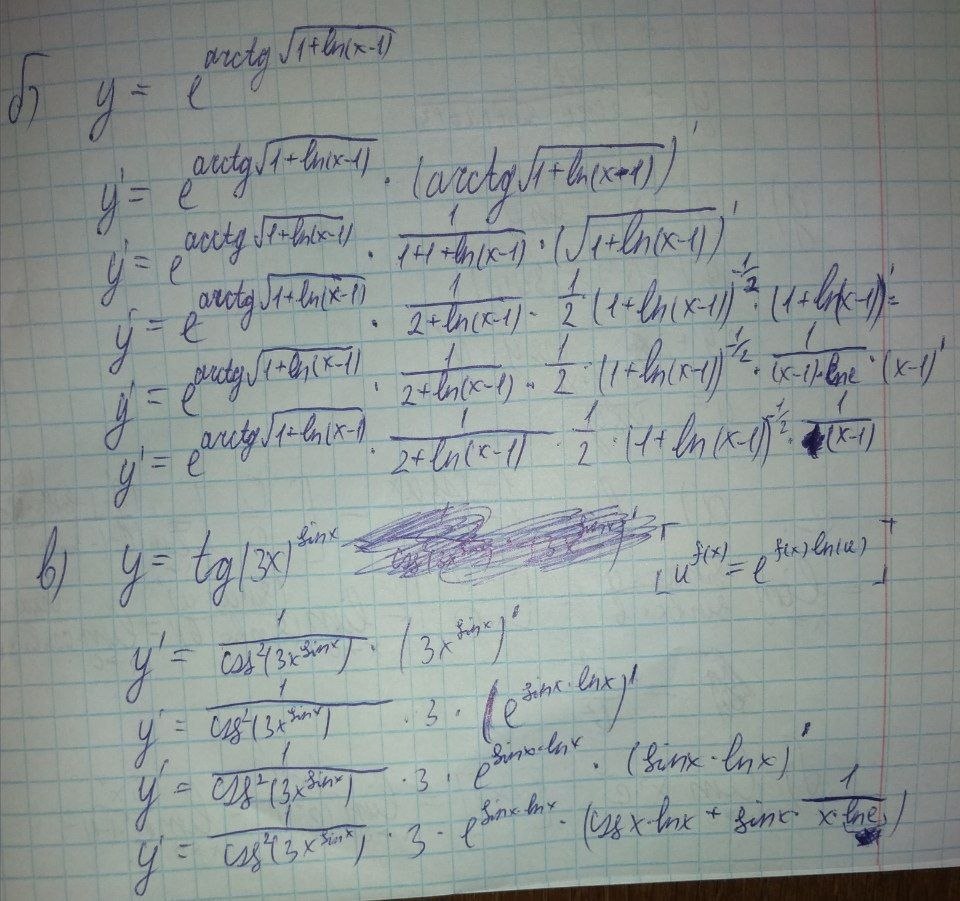 б) y = e^{arctg√(1+ln(x-1))}
y' = e^{arctg√(1+ln(x-1))} · (arctg√(1+ln(x-1)))'
y' = e^{arctg√(1+ln(x-1))} · 1/(1+1+ln(x-1)) · (√(1+ln(x-1)))'
y' = e^{arctg√(1+ln(x-1))} · 1/(2+ln(x-1)) · 1/2 (1+ln(x-1))^{-1/2} · (1+ln(x-1))' =
y' = e^{arctg√(1+ln(x-1))} · 1/(2+ln(x-1)) · 1/2 · (1+ln(x-1))^{-1/2} · 1/((x-1)·lne) · (x-1)'
y' = e^{arctg√(1+ln(x-1))} · 1/(2+ln(x-1)) · 1/2 · (1+ln(x-1))^{-1/2} · 1/(x-1)
в) y = tg(3x)^{sinx} [u^{f(x)} = e^{f(x)ln(u)}]
y' = 1/cos²(3x^{sinx}) · (3x^{sinx})'
y' = 1/cos²(3x^{sinx}) · 3 · (e^{sinx·lnx})'
y' = 1/cos²(3x^{sinx}) · 3 · e^{sinx·lnx} · (sinx·lnx)'
y' = 1/cos²(3x^{sinx}) · 3 · e^{sinx·lnx} · (cosx·lnx + sinx · 1/(x·lne))